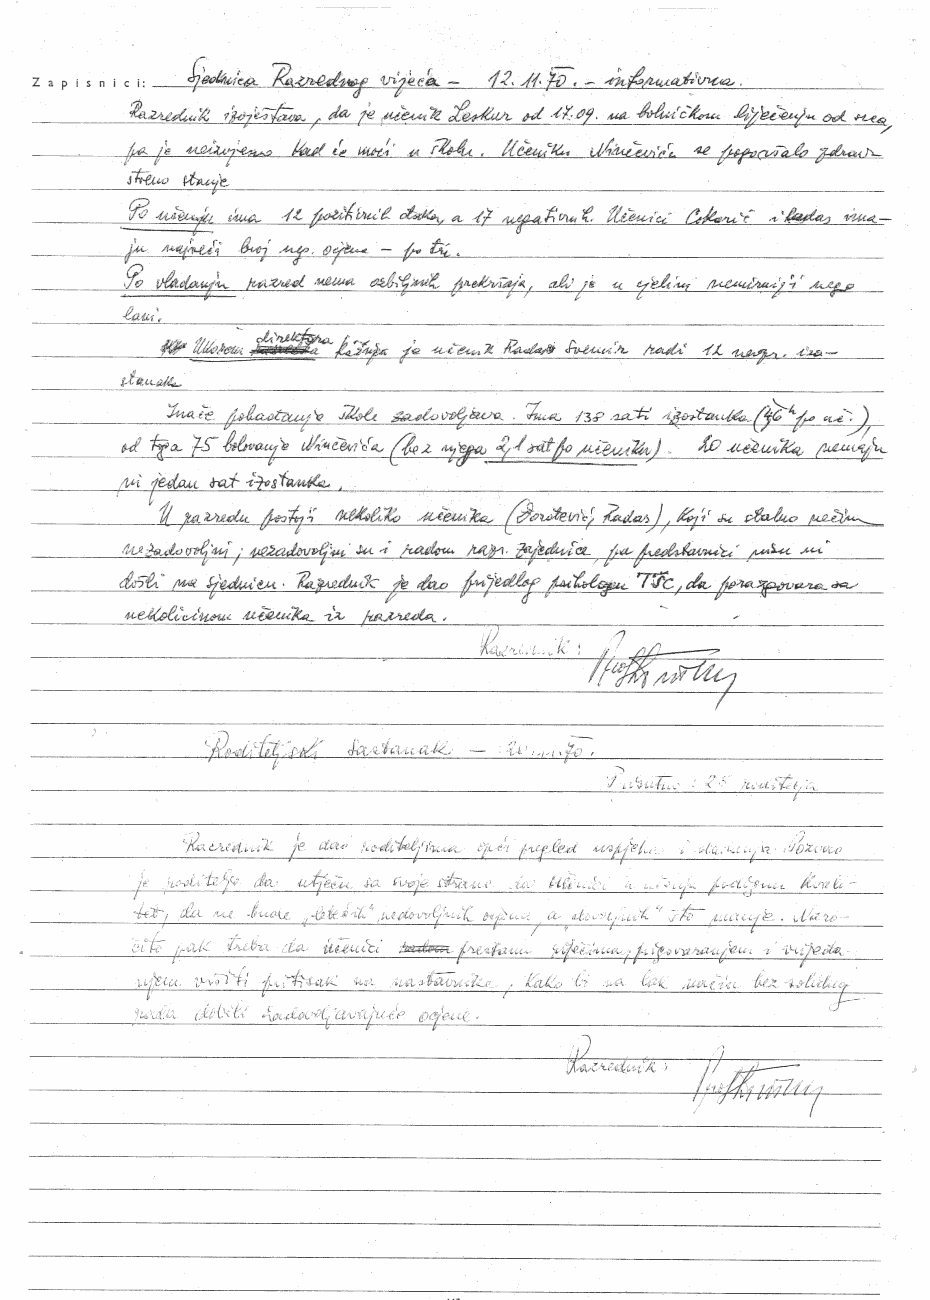 Zapisnici: Sjednica Razrednog vijeća – 12.11.70. – informativna.
Razrednik izvještava, da je učenik Leskur od 17.09. na bolničkom liječenju od srca,
pa je neizvjesno kad će moći u školu. Učeniku Ninčeviću se pogoršalo zdrav
stveno stanje
Po učenju ima 12 pozitivnih đaka, a 17 negativnih. Učenici Cokarić i Radas ima-
ju najveći broj neg. ocjena – po tri.
Po vladanju razred nema ozbiljnih prekršaja, ali je u cjelini nemirniji nego
lani.
Ukorom direktora kažnjen je učenik Radas Svemir radi 12 neopr. izo-
stanaka
Inače pohađanje škole zadovoljava. Ima 138 sati izostanka (4,6 h po uč.),
od toga 75 bolovanje Ninčevića (bez njega 2,1 sat po učeniku). 20 učenika nemaju
ni jedan sat izostanka.
U razredu postoji nekoliko učenika (Dorotević, Radas), koji su stalno nečim
nezadovoljni; nezadovoljni su i radom razr. zajednice, pa predstavnici nisu ni
došli na sjednicu. Razrednik je dao prijedlog psihologu TŠC, da porazgovara sa
nekolicinom učenika iz razreda.
Razrednik:
Roditeljski sastanak – 70.
Prisutno: 25 roditelja
Razrednik je dao roditeljima opći pregled uspjeha i vladanja. Pozvao
je roditelje da utječu sa svoje strane da učenici u učenju podignu kvali-
tet, da ne bude nedovoljnih ocjena, a „dovoljnih" što manje. Naro-
čito pak treba da učenici prestanu prigovaranjem i vrijeđa-
njem vršiti pritisak na nastavnike, kako bi na lak način bez solidnog
rada dobili zadovoljavajuće ocjene.
Razrednik: